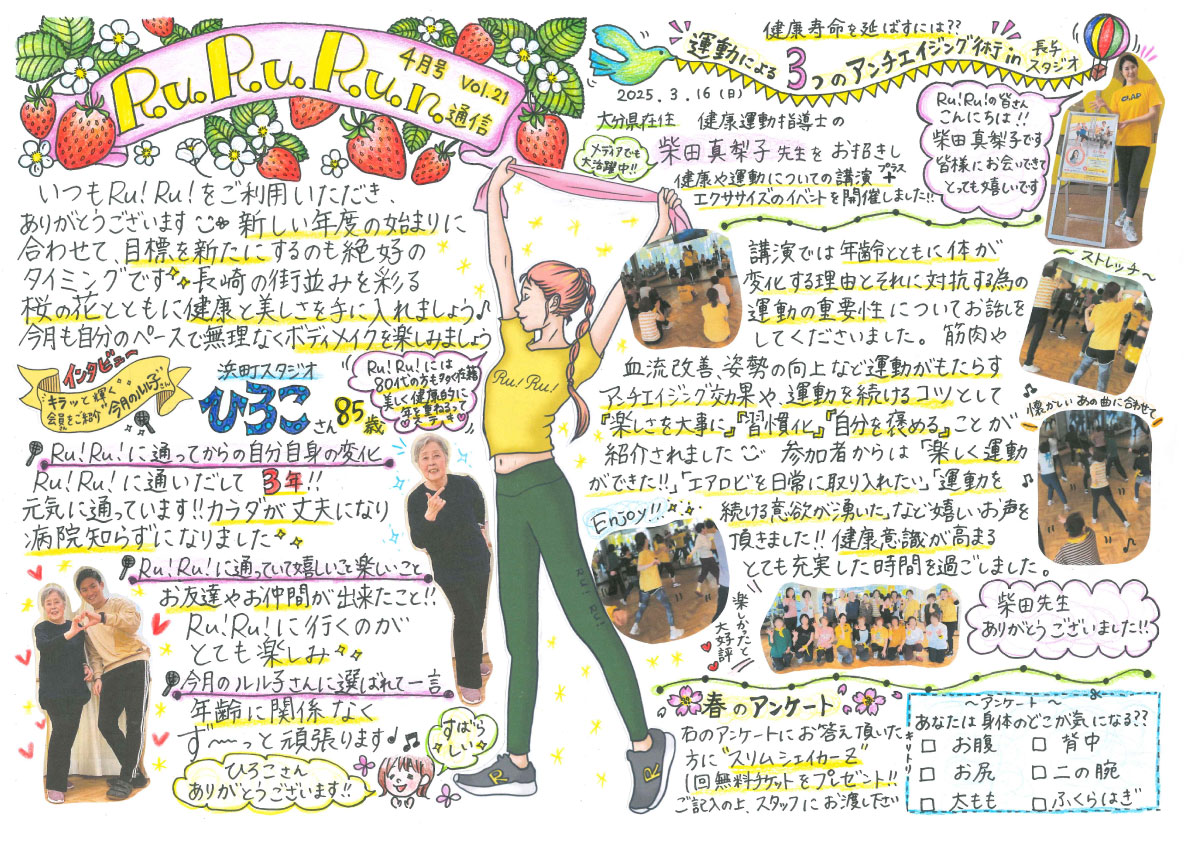 Ru.Ru.Run.通信
4月号
Vol.21
いつもRu!Ru!をご利用いただき、
ありがとうございます 新しい年度の始まりに
合わせて、目標を新たにするのも絶好の
タイミングです 長崎の街並みを彩る
桜の花とともに健康と美しさを手に入れましょう♪
今月も自分のペースで無理なくボディメイクを楽しみましょう
インタビュー
キラッと輝く
会員をご紹介
"今月のルル子"さん
浜町スタジオ
ひろこさん85歳
Ru!Ru!には
80代の方も多数在籍
美しく健康的に
年を重ねるって
ステキ
Ru!Ru!に通ってからの自分自身の変化
Ru!Ru!に通いだして 3年!!
元気に通っています!!カラダが丈夫になり
病院知らずになりました
Ru!Ru!に通っていて嬉しいこと楽しいこと
お友達やお仲間が出来たこと!!
Ru!Ru!に行くのが
とても楽しみ
今月のルル子さんに選ばれて一言
年齢に関係なく
ず〜〜っと頑張ります♪♫
すばらしい
ひろこさん
ありがとうございます!!
Ru!Ru!
RU!RU!
健康寿命を延ばすには??
運動による3つのアンチエイジング体子in長与スタジオ
2025.3.16(日)
大分県在住 健康運動指導士の
メディアでも
大活躍中!!
柴田真梨子先生をお招きし
健康や運動についての講演+プラス
エクササイズのイベントを開催しました!!
Ru!Ru!の皆さん
こんにちは!!
柴田真梨子です
皆様にお会いできて
とっても嬉しいです
講演では年齢とともに体が
変化する理由とそれに対抗する為の
運動の重要性についてお話しを
してくださいました。筋肉や
血流改善、姿勢の向上など運動がもたらす
アンチエイジング効果や、運動を続けるコツとして
『楽しさを大事に』『習慣化』『自分を褒める』ことが
紹介されました 参加者からは「楽しく運動
ができた!!」「エアロビを日常に取り入れたい」「運動を
続ける意欲が湧いた」など嬉しいお声を
頂きました!!健康意識が高まる
とても充実した時間を過ごしました。
〜ストレッチ〜
懐かしいあの曲に合わせて
Enjoy!!
楽しかったと
大好評
柴田先生
ありがとうございました!!
春のアンケート
右のアンケートにお答え頂いた
方に"スリムシェイカーZ"
1回無料チケットをプレゼント!!
ご記入の上、スタッフにお渡し下さい
キリトリ
〜アンケート〜
あなたは身体のどこが気になる??
□ お腹 □ 背中
□ お尻 □ 二の腕
□ 太もも □ ふくらはぎ